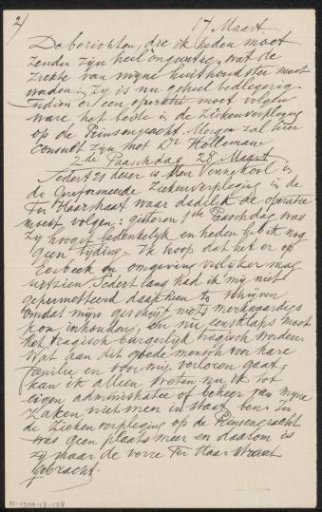 2/
17 Maart
De berichten, die ik heden moet
zenden zijn heel ongunstig, wat de
ziekte van mijne huishoudster moet
worden. Zij is nu geheel bedlegerig.
Indien er een operatie moet volgen
ware, het beste in de Ziekenverpleging
op de Prinsengracht. Morgen zal hier
consult zijn met Dr
2de Paaschdag 28 Maart.
Sedert 21 dezer is Mej Vennekool in
de Gereformeerde Ziekenverpleging in de
Ter Haarstraat waar dadelijk de operatie
moest volgen: gisteren 1ste Paaschdag was
zij hoogst bedenkelijk en heden heb ik nog
geen tijding. Ik hoop dat het er op
Eerbeek en omgeving vrolijker mag
uitzien. Sedert lang had ik mij niet
gepermitteerd daarheen te schrijven
omdat mijn geschrijf niets merkwaardigs
kon inhouden, en nu eensklaps moet
het tragisch burgerlijk tragisch worden.
Wat aan dit goede mensch voor hare
familie en voor mij verloren gaat,
kan ik alleen weten nu ik tot
eigen administratie of beheer van mijne
Zaken niet meer in staat ben. In
de Ziekenverpleging op de Prinsengracht
was geen plaats meer en daarom is
zij naar de verre Ter Haar straat
gebracht.